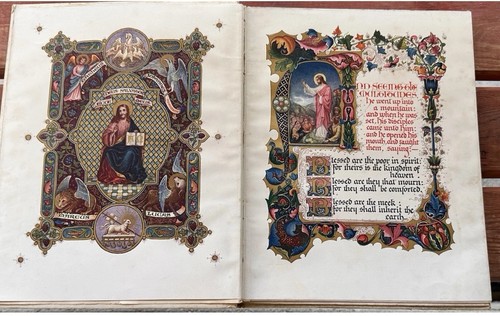 MARCUS
LUCAS
AND SEEING THE
MULTITUDES,
He went up into
a mountain:
and when he was
set, his disciples
came unto him:
and he opened his
mouth, and taught
them, saying:—
Blessed are the poor in spirit:
for theirs is the kingdom of
heaven.
Blessed are they that mourn:
for they shall be comforted.
Blessed are the meek:
for they shall inherit the
earth.